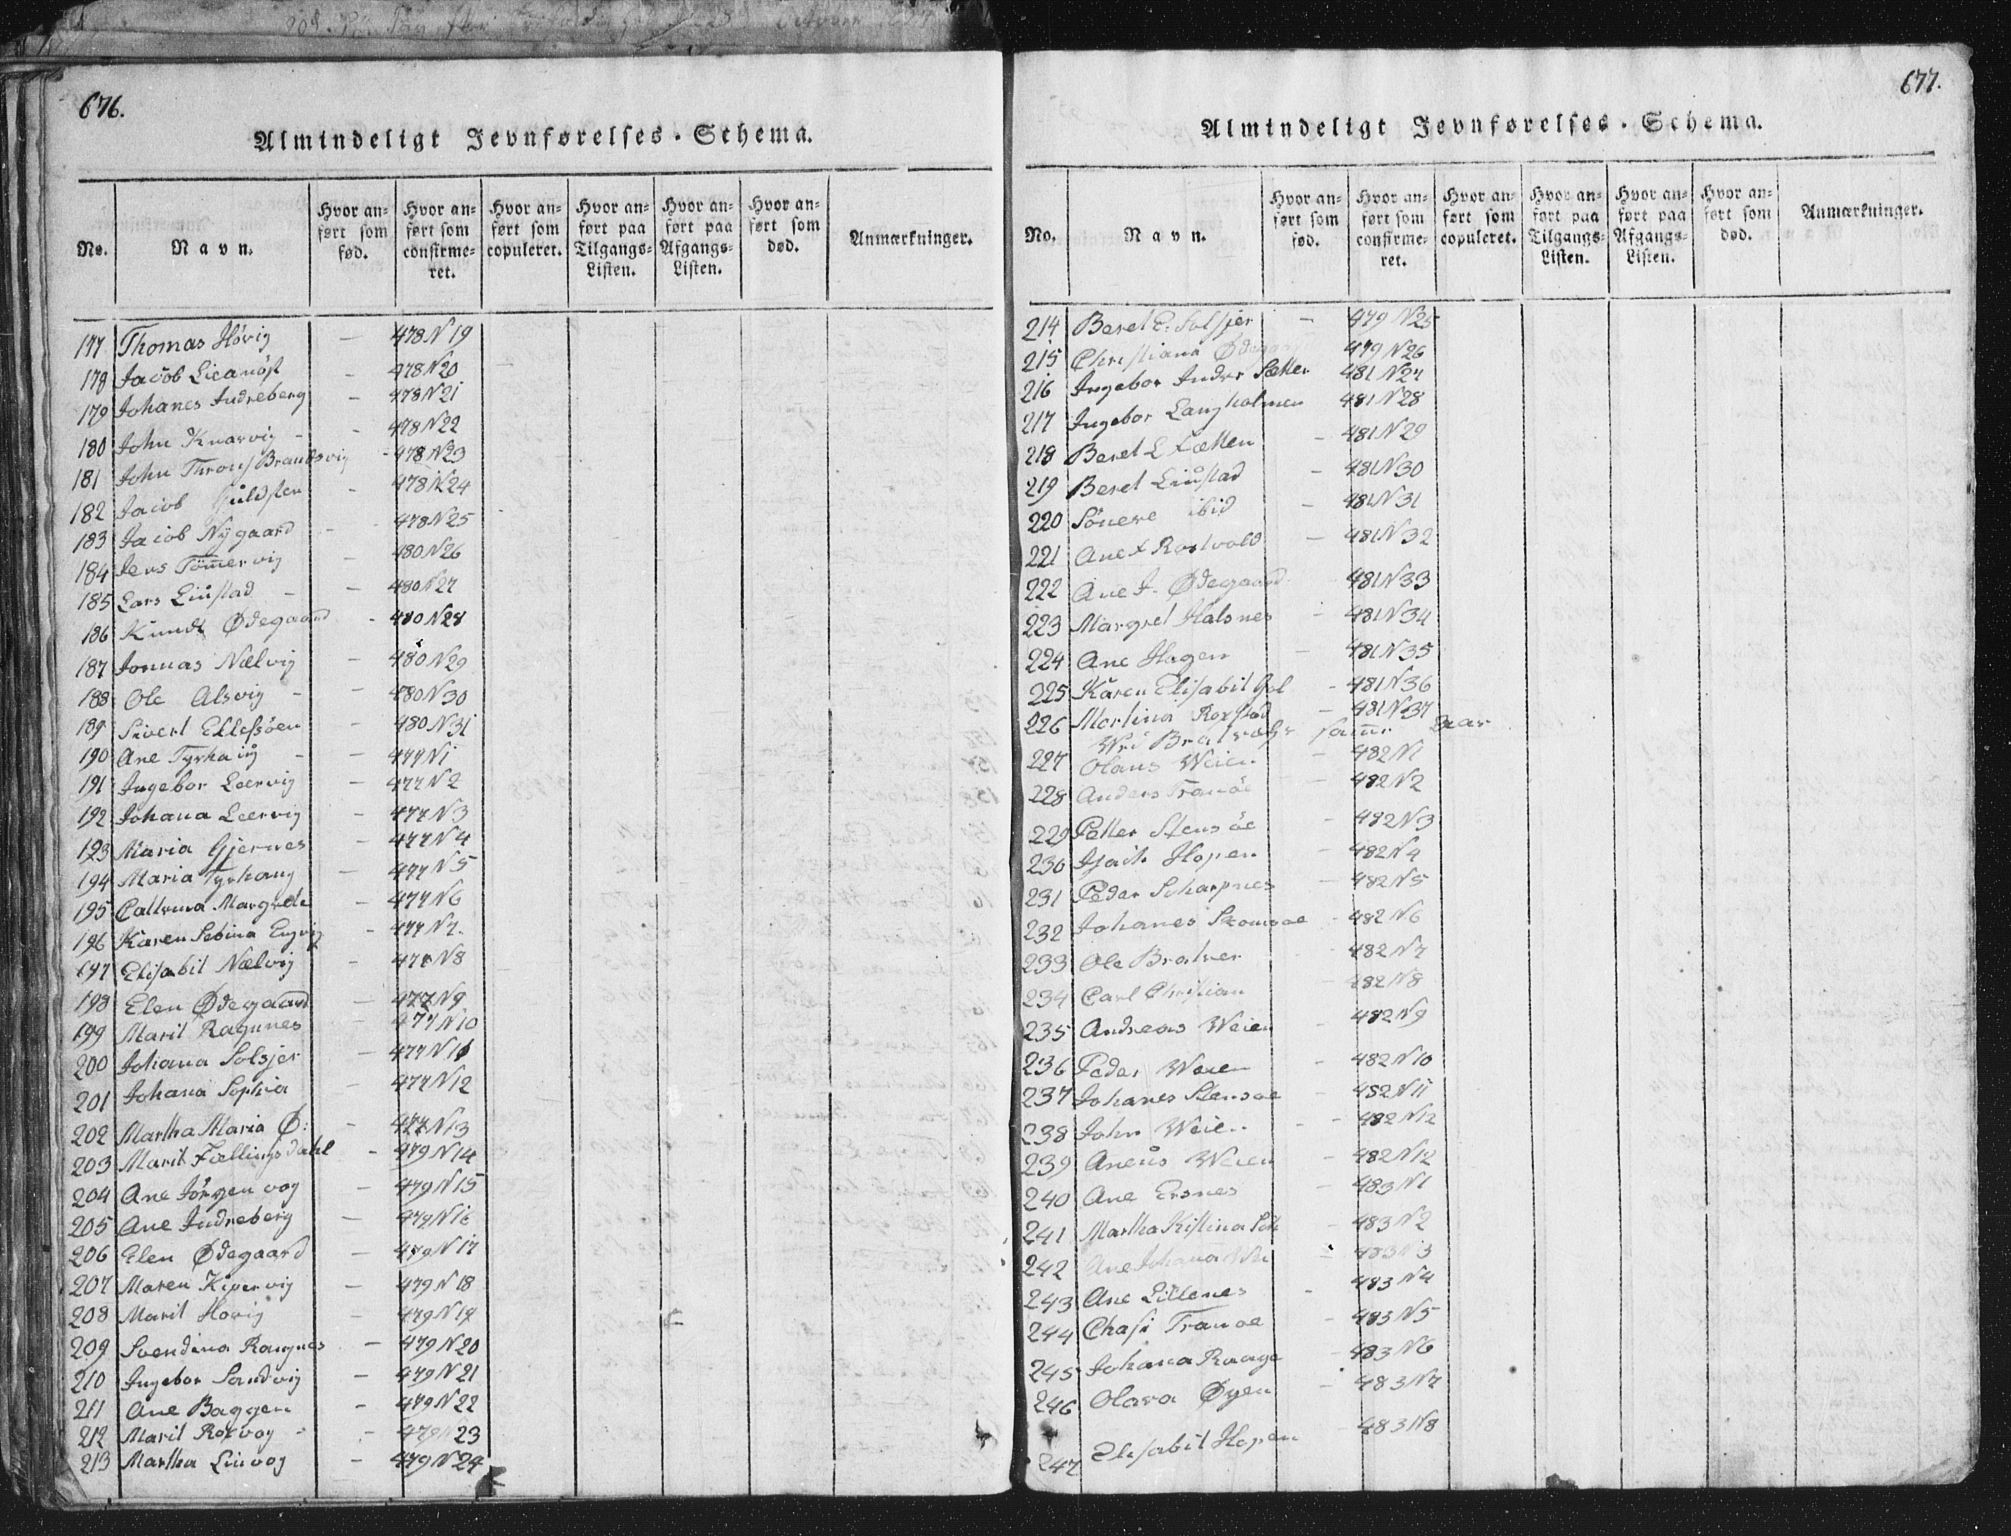 676.
Almindeligt Jevnførelses-Schema.
No. Navn. Hvor anført som fød. Hvor anført som confirmeret. Hvor anført som copuleret. Hvor anført paa Tilgangs-Listen. Hvor anført paa Afgangs-Listen. Hvor anført som død. Anmærkninger.
177 Thomas Hövig — 478 N 19
178 Jacob — 478 N 20
179 Johanes Indreberg — 478 N 21
180 John Knarvig — 478 N 22
181 John - 478 N 23
182 Jacob - 478 N 24
183 Jacob Nÿgaard — 478 N 25
184 Jens Tömervig — 480 N 26
185 Lars Liustad — 480 N 27
186 Knudt Ødegaard - 480 N 28
187 Jonnas Nælvig — 480 N 29
188 Ole Alsvig — 480 N 30
189 Sivert Ellefsöen — 480 N 31
190 Ane Tyrhaug — 477 N 1
191 Ingebor Leervig — 477 N 2
192 Johana Leervig — 477 N 3
193 Maria Gjernes — 477 N 4
194 Maria Tyrhaug — 477 N 5
195 Cattrina Margrete — 477 N 6
196 Karen Sebina Engvig - 477 N 7.
197 Elisabit Nælvig — 477 N 8
198 Elen Ødegaard — 477 N 9
199 Marit Ragnnes — 477 N 10
200 Johana Solsjer — 477 N 11
201 Johana Sophia — 477 N 12
202 Martha Maria Ø: — 477 N 13
203 Marit Fællingsdahl - 479 N 14
204 Ane Jörgenvog — 479 N 15
205 Ane Indreberg — 479 N 16
206 Elen Ødegaard — 479 N 17
207 Maren Kipervig — 479 N 18
208 Marit Hovig — 479 N 19
209 Svendina Rangnes — 479 N 20
210 Ingebor Sandvig — 479 N 21
211 Ane Baggen - 479 N 22
212 Marit Rosvog - 479 N 23
213 Martha Linvog - 479 N 24
677.
Almindeligt Jevnførelses-Schema.
No. Navn. Hvor anført som fød. Hvor anført som confirmeret. Hvor anført som copuleret. Hvor anført paa Tilgangs-Listen. Hvor anført paa Afgangs-Listen. Hvor anført som død. Anmærkninger.
214 Beret E. Solsjer — 479 N 25
215 Christiana 479 N 26
216 Ingebor Indre Sætter 481 N 27
217 Ingebor Langholmen 481 N 28
218 Beret L - 481 N 29
219 Beret Liustad - 481 N 30
220 Sönere ibid - 481 N 31
221 Ane Rostvold - 481 N 32
222 Ane J. Ødegaard - 481 N 33
223 Margret Halsnes - 481 N 34
224 Ane Hagen — 481 N 35
225 Karen Elisabit - 481 N 36
226 Mortina - 481 N 37
227 Olaus Weien — 482 N 1
228 Anders Tranöe - 482 N 2
229 Petter Stensöe — 482 N 3
230 Hopen — 482 N 4
231 Peder Scharpnes — 482 N 5
232 Johanes - 482 N 6
233 Ole Bratver - 482 N 7
234 Carl Christian 482 N 8
235 Andreas Weien - 482 N 9
236 Peder Weien - 482 N 10
237 Johanes Stensoe - 482 N 11
238 John Weien - 482 N 12
239 Aneus Weien - 482 N 12
240 Ane Ersnes - 483 N 1
241 Martha Kistina - 483 N 2
242 Ane Johana - 483 N 3
243 Ane Lillenes - 483 N 4
244 Tranoe - 483 N 5
245 Johana - 483 N 6
246 Olava Øyen - 483 N 7
247 Elisabit Hopen - 483 N 8